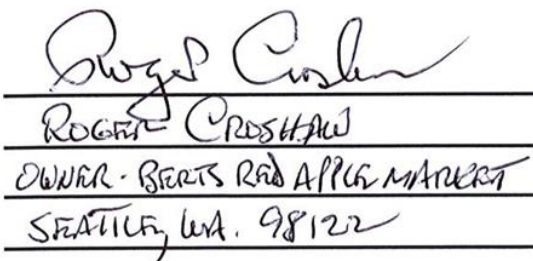 Roger Croshaw
ROGER CROSHAW
OWNER - BERTS RED APPLE MARKET
SEATTLE, WA. 98122